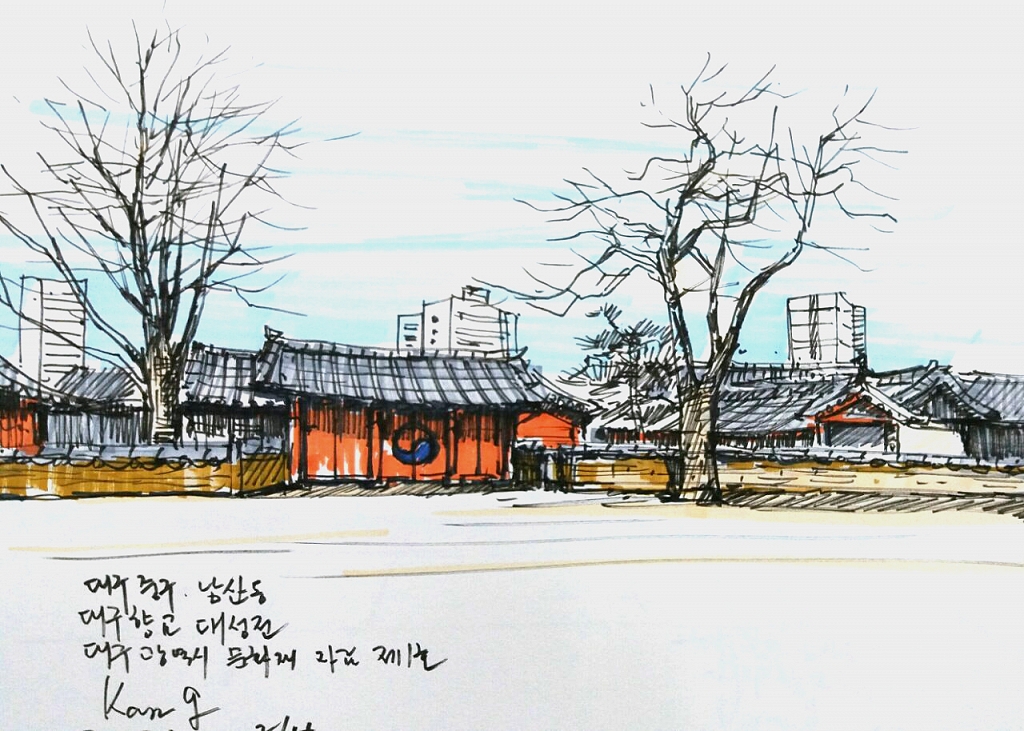 대구 중구. 남산동
대구향교 대성전
대구광역시 문화재 자료 제1호
Kang